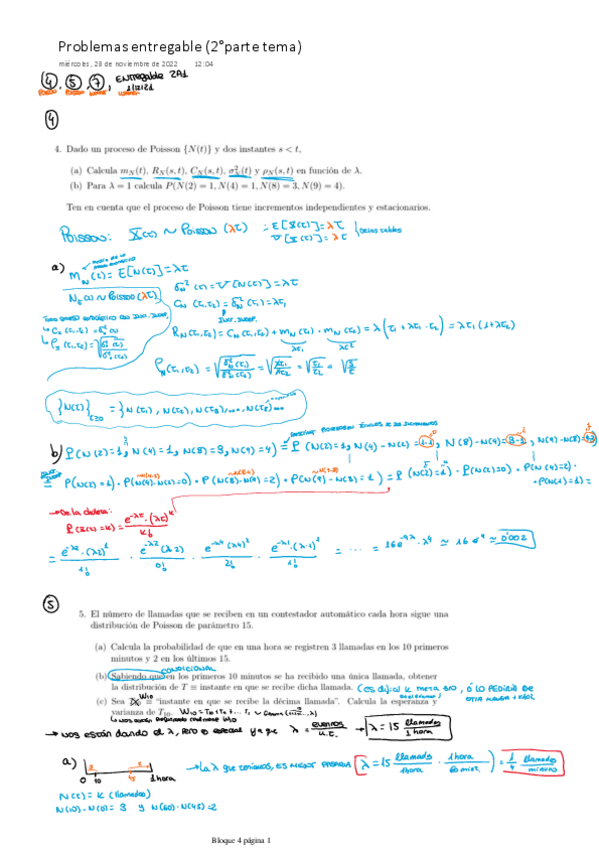 Problemas entregable (2°parte tema)
miércoles, 23 de noviembre de 2022 12:04
4, 5, 7, Entregable 2A1
1/12/21
4
4. Dado un proceso de Poisson {N(t)} y dos instantes s < t,
(a) Calcula m_N(t), R_N(s,t), C_N(s,t), σ²_N(t) y ρ_N(s,t) en función de λ.
(b) Para λ = 1 calcula P(N(2) = 1, N(4) = 1, N(8) = 3, N(9) = 4).
Ten en cuenta que el proceso de Poisson tiene incrementos independientes y estacionarios.
Poisson: X(t) ~ Poisson (λt) ∴ E[X(t)]=λt
V[X(t)]=λt
a) m_N(t) = E[N(t)] = λt
N_t(t) ~ Poisson(λt)
σ_N²(t) = V[N(t)] = λt
C_N(t₁,t₂) = σ_N²(t₁) = λt₁
R_N(t₁,t₂) = C_N(t₁,t₂) + m_N(t₁) · m_N(t₂) = λ(t₁ + λt₁·t₂) = λt₁(1+λt₂)
{N(t)}t≥0 = {N(t₁), N(t₂), N(t₃), ..., N(t₅) ...
b) P(N(2)=1, N(4)=1, N(8)=3, N(9)=4) = P(N(2)=1, N(4)-N(2)=1-1, N(8)-N(4)=3-1, N(9)-N(8)=4-3)
P(N(2)=1) · P(N(4)-N(2)=0) · P(N(8)-N(4)=2) · P(N(9)-N(8)=1) = P(N(2)=1) · P(N(2)=0) · P(N(4)=2) ·
· P(N(1)=1) =
→ De la chuleta:
= ... = 16e^-9λ · λ⁴ ≈ 16 e^-9 ≈ 0'002
5
5. El número de llamadas que se reciben en un contestador automático cada hora sigue una
distribución de Poisson de parámetro 15.
(a) Calcula la probabilidad de que en una hora se registren 3 llamadas en los 10 primeros
minutos y 2 en los últimos 15.
CONDICIONAL
(b) Sabiendo que en los primeros 10 minutos se ha recibido una única llamada, obtener
la distribución de T ≡ instante en que se recibe dicha llamada.
(c) Sea W10 ≡ "instante en que se recibe la décima llamada". Calcula la esperanza y
varianza de T₁₀.
→ nos están dando el λ, pero ya que λ = eventos / u.t. → λ = 15 llamadas / 1 hora
a)
0 10 1 hora
→ La λ que teníamos, es mejor ponerla λ = 15 llamadas / 1 hora · 1 hora / 60 min = 1/4 llamadas / minuto
N(t) = k (llamadas)
N(10)-N(0) = 3 y N(60)-N(45) = 2
Bloque 4 página 1